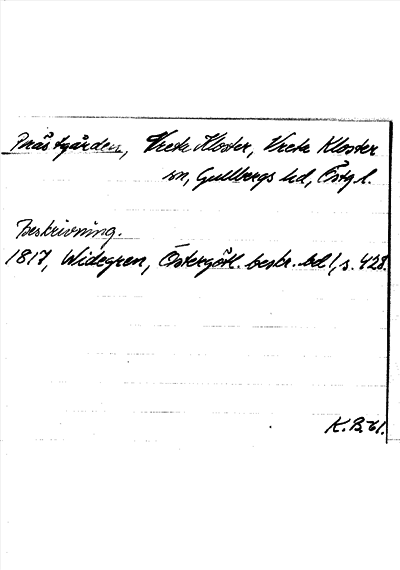 Prästgården, Vreta Kloster, Vreta Kloster
sn, Gullbergs hd, Östg l.
Beskrivning.
1817, Widegren, Östergötl. beskr. bd 1, s. 428.
K.B. 61.